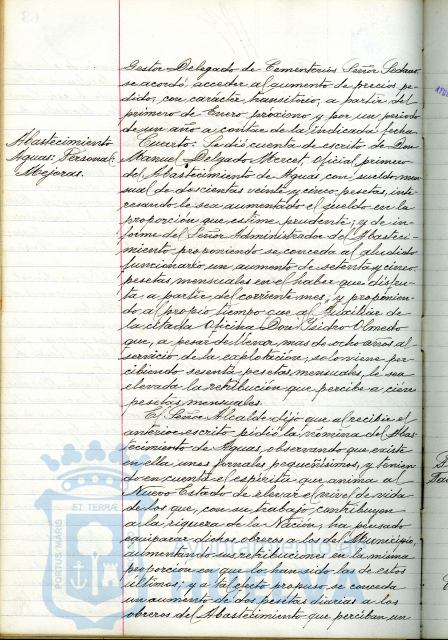 Gestor Delegado de Cementerios Señor Sedano
se acordó acceder al aumento de precios pe-
dido, con carácter transitorio, a partir del
primero de Enero próximo y por un periodo
de un año a contar de la indicada fecha.
Abastecimiento
Aguas; Personal
Mejoras.
Cuarto: Se dió cuenta de escrito de Don
Manuel Delgado Mercet, Oficial primero
del Abastecimiento de Aguas, con sueldo men-
sual de doscientas veinte y cinco pesetas, inte-
resando le sea aumentado el sueldo en la
proporción que estime prudente; y de in-
forme del Señor Administrador del Abasteci-
miento proponiendo se conceda al aludido
funcionario un aumento de setenta y cinco
pesetas mensuales en el haber que disfru-
ta, a partir del corriente mes; y proponien-
do al propio tiempo que al Auxiliar de
la citada Oficina Don Isidro Olmedo
que, a pesar de llevar mas de ocho años al
servicio de la explotación, solo viene per-
cibiendo sesenta pesetas mensuales, le sea
elevada la retribución que percibe a cien
pesetas mensuales.
El Señor Alcalde dijo que al recibir el
anterior escrito pidió la nómina del Abas-
tecimiento de Aguas, observando que existe
en ella unos jornales pequeñísimos, y tenien-
do en cuenta el espíritu que anima al
Nuevo Estado de elevar el nivel de vida
de los que, con su trabajo contribuyen
a la riqueza de la Nación, ha pensado
equiparar dichos obreros a los del Municipio,
aumentando sus retribuciones en la misma
proporción en que lo han sido las de estos
últimos; y a tal efecto propuso se conceda
un aumento de dos pesetas diarias a los
obreros del Abastecimiento que perciban un
PORTUS MARIS
ET TERRÆ